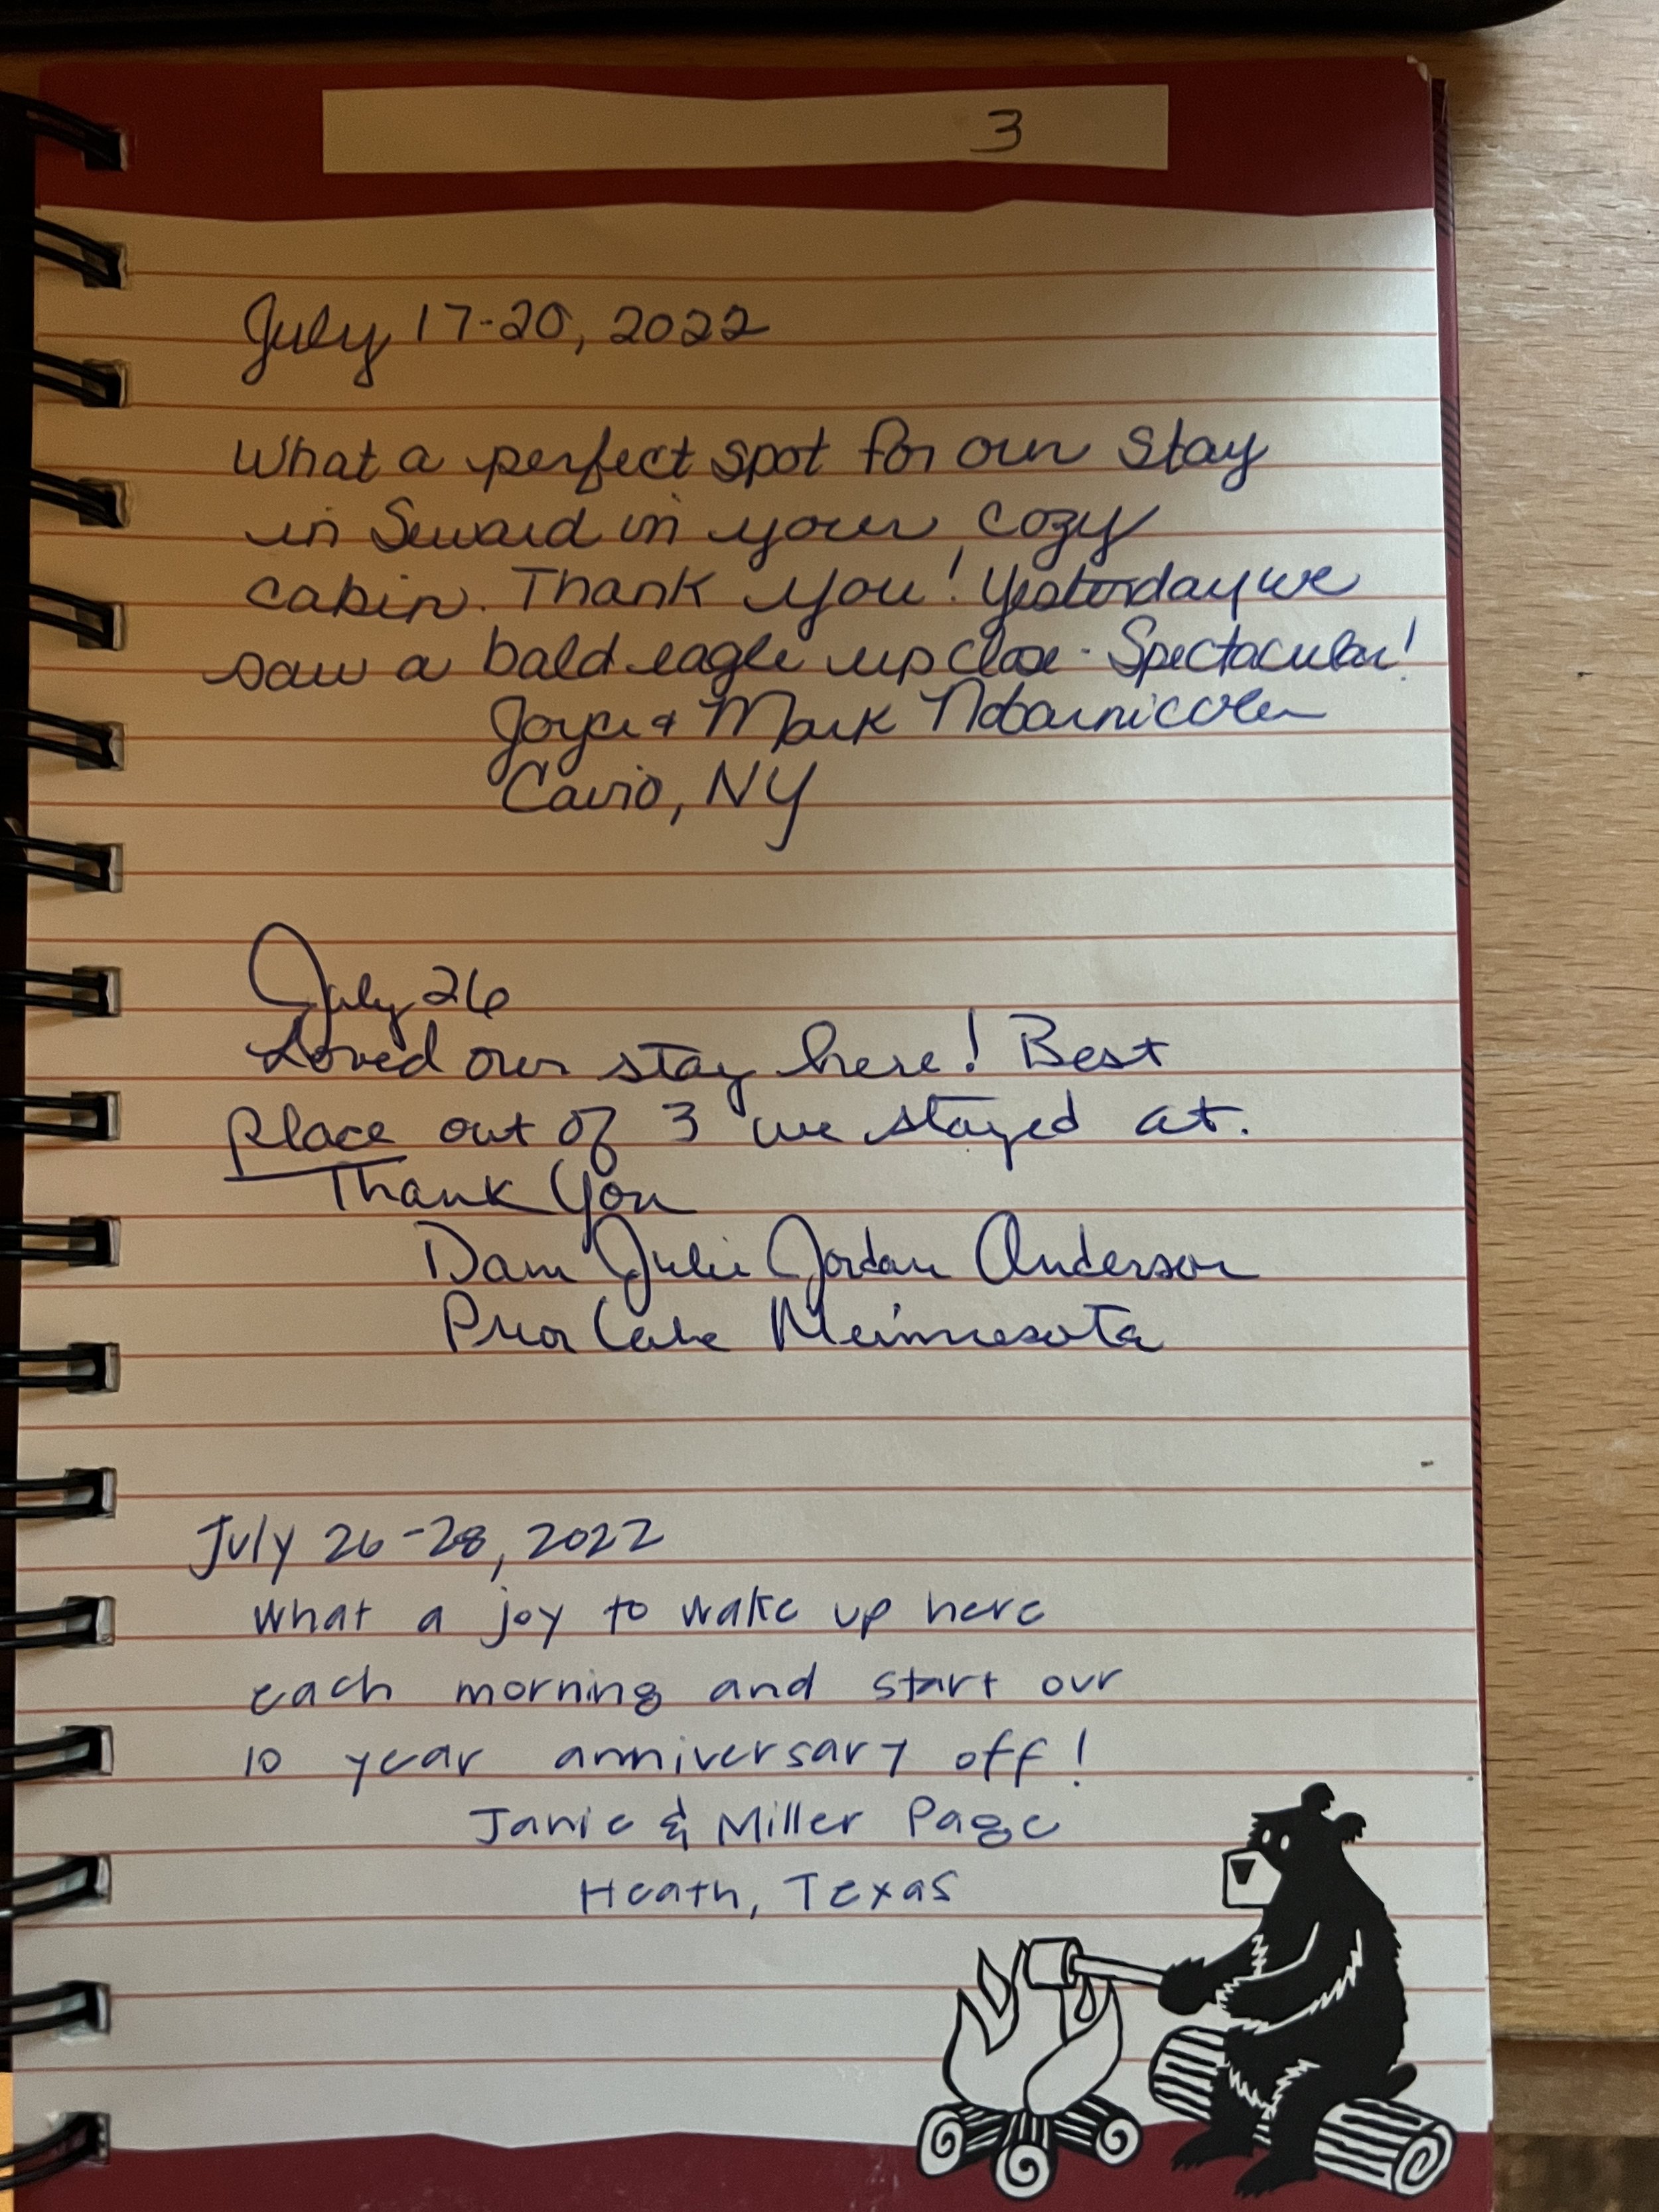 3
July 17-20, 2022
What a perfect spot for our stay
in Seward in your cozy
cabin. Thank you! Yesterday we
saw a bald eagle up close - Spectacular!
Joyce & Mark
Cairo, NY
July 26
Loved our stay here! Best
place out of 3 we stayed at.
Thank You
Dam Julie Jordan Anderson
Prior Lake Meinnesota
July 26-28, 2022
What a joy to wake up here
each morning and start our
10 year anniversary off!
Janie & Miller Page
Heath, Texas